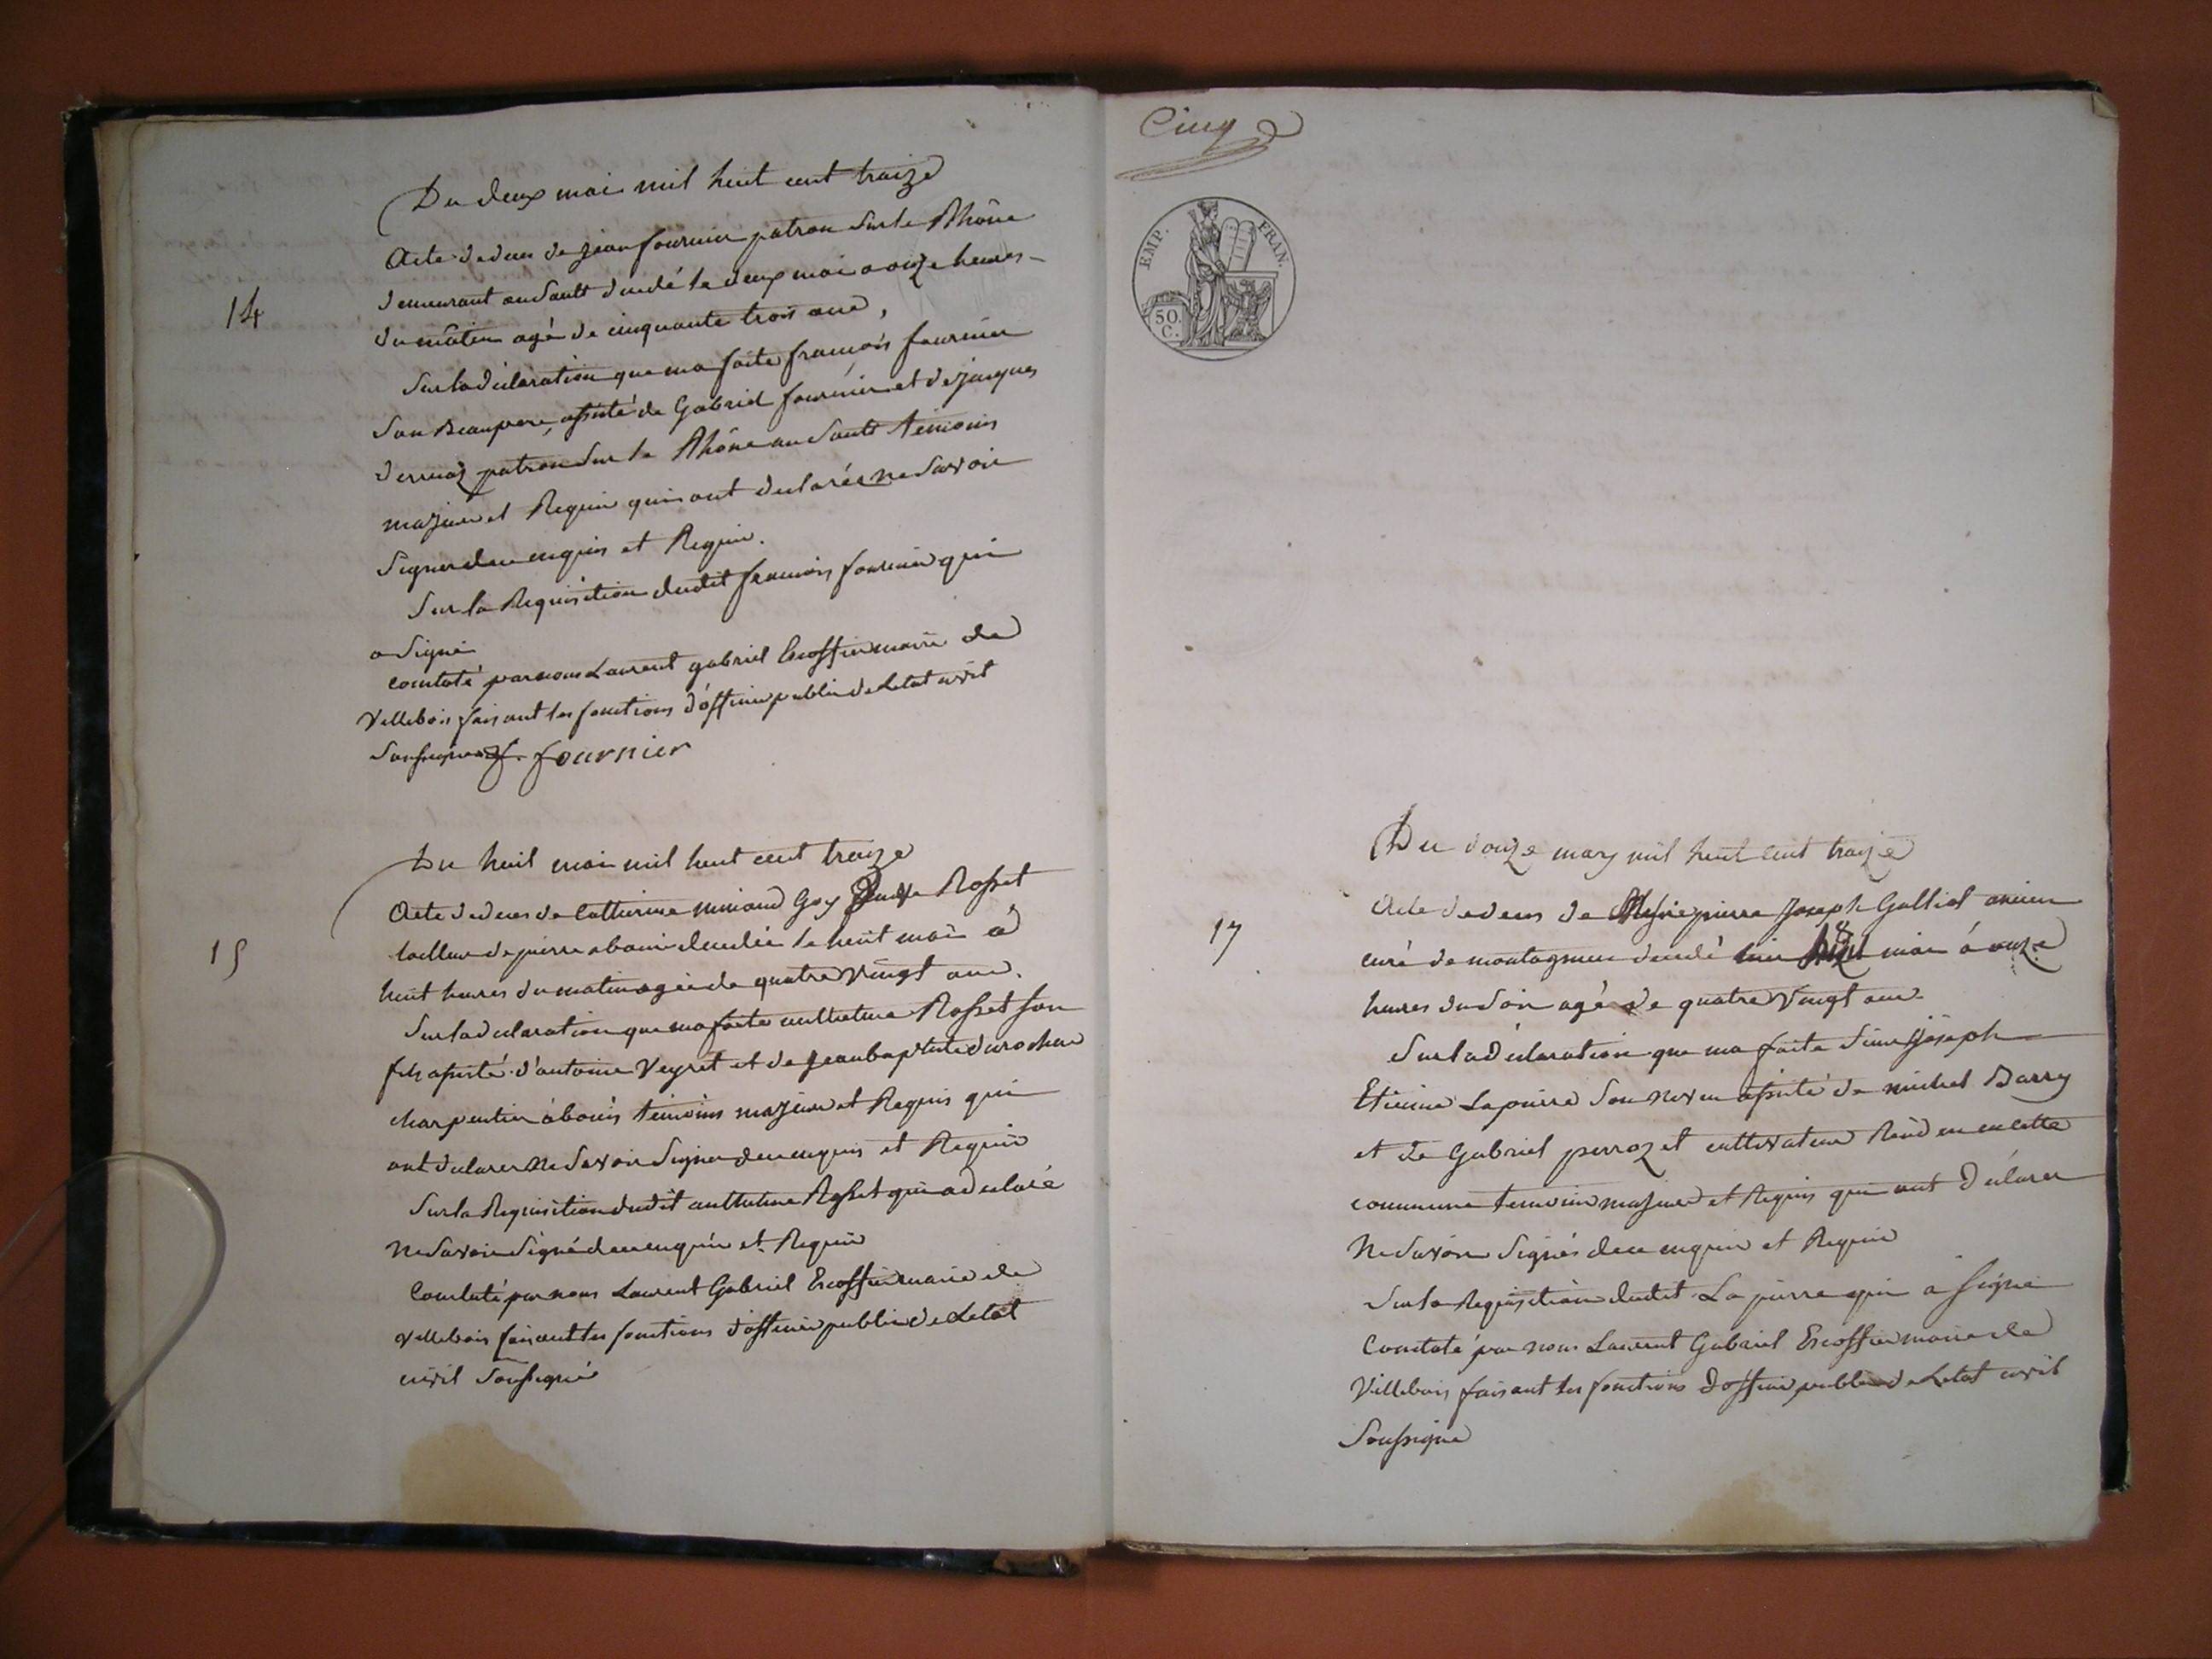 Du deux mai mil huit cent traize
14
Acte de deces de jean fournier patron sur le Rhône
demeurant au Sault decedé le deux mai a onze heures
du matin agé de cinquante trois ans,
Sur la déclaration que ma faite françois fournier
son Beaupere, assisté de Gabriel fournier et de jacques
patron sur le Rhône au Sault témoins
majeurs et Requis qui ont declarés ne Savoir
Signer de ce enquis et Requis.
Sur la Requisition dudit francois fournier qui
a Signé
constaté par nous Laurent gabriel Escoffier maire de
Villebois faisant les fonctions d'officier public de Letat civil
Soussigné f. fournier
Du huit mai mil huit cent traize
15
Acte de deces de Catherine Goy Rosset
tailleur de pierre a bouis decedée le huit mai à
huit heures du matin agée de quatre Vingt ans.
Sur la declaration que ma faite anthelme Rosset son
fils assisté d'antoine Veyret et de jean baptiste
charpentier à bouis témoins majeurs et Requis qui
ont declarer ne Savoir Signer de ce enquis et Requis
Sur la Requisition dudit anthelme Rosset qui a declaré
ne Savoir Signé de ce enquis et Requis
Constaté par nous Laurent Gabriel Escoffier maire de
Villebois faisant les fonctions d'officier public de Letat
civil Soussigné
Cinq
EMP. FRAN.
50. C.
Du douze may mil huit cent traize
17
Acte de deces de Messire pierre Joseph Galliot ancien
curé de montagnieu decedé mai à onze
heures du Soir agé de quatre Vingt ans.
Sur la déclaration que ma faite Sieur Joseph
Etienne Lapierre Son neveu assisté de michel Barry
et de Gabriel perrozet cultivateurs en cette
commune temoins majeurs et Requis qui ont Déclarer
Ne Savoir Signés de ce enquis et Requis
Sur la Requisition dudit Lapierre qui a Signé
Constaté par nous Laurent Gabriel Escoffier maire de
Villebois faisant les fonctions d'officier public de Letat civil
Soussigné